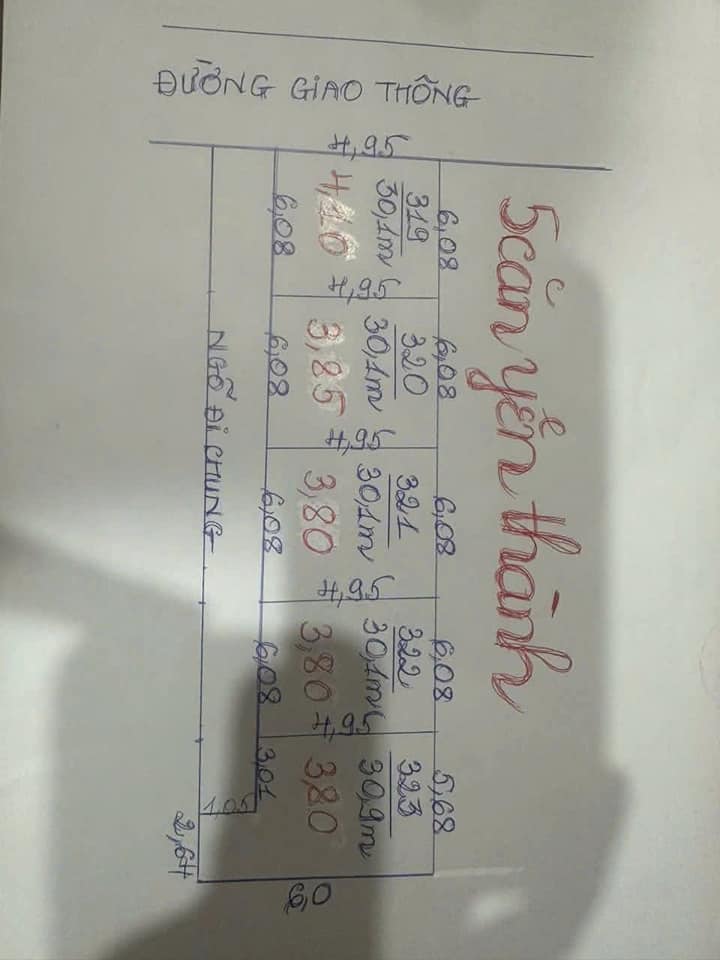 ĐƯỜNG GIAO THÔNG
5 căn yên thành
4,95
6,08
319
30,1m
4,10
6,08
4,95
6,08
320
30,1m
3,85
6,08
4,95
6,08
321
30,1m
3,80
6,08
4,95
6,08
322
30,1m
3,80
6,08
4,95
5,68
323
30,9m
3,80
3,01
NGÕ ĐI CHUNG
1,05
2,64
6,0